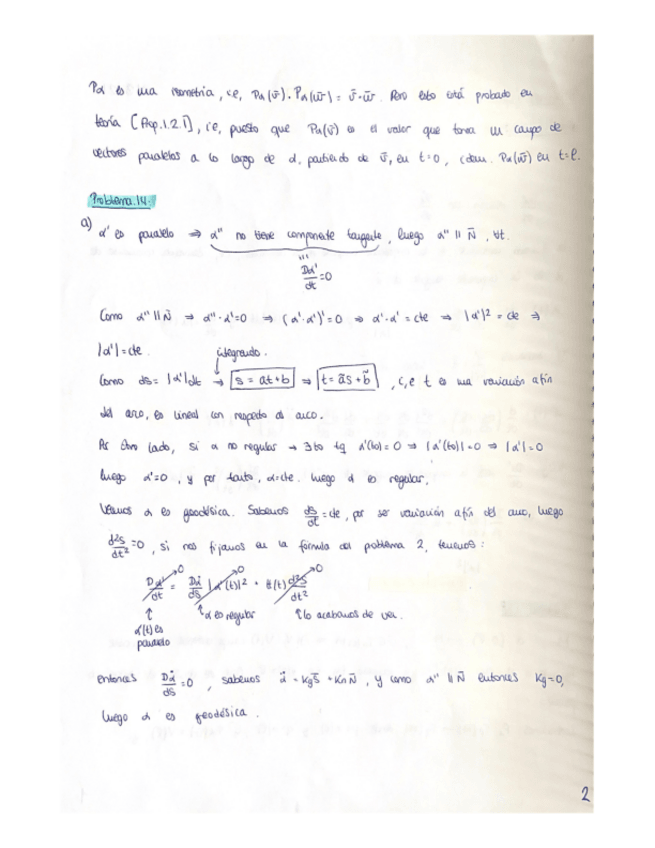 Pα es una isometría, i.e, Pα(v̄)·Pα(w̄) = v̄·w̄. Pero esto está probado en
teoría [Prop.1.2.1], i.e, puesto que Pα(v̄) es el valor que toma un campo de
vectores paralelos a lo largo de α, partiendo de v̄, en t=0, idem. Pα(w̄) en t=l.
Problema.14:
a) α' es paralelo ⇒ α'' no tiene componente tangente, luego α'' ∥ N̄, ∀t.
Dα'/dt = 0
Como α'' ∥ N̄ ⇒ α''·α'=0 ⇒ (α'·α')'=0 ⇒ α'·α' = cte ⇒ |α'|² = cte ⇒
|α'| = cte.
integrando.
Como ds = |α'|dt → s = at+b ⇒ t = ãs + b̃, i,e t es una variación afín
del arco, es lineal con respecto al arco.
Por otro lado, si α no regular → ∃ t₀ tq α'(t₀) = 0 ⇒ |α'(t₀)| = 0 ⇒ |α'| = 0
luego α'=0, y por tanto, α=cte. luego α es regular.
Veamos α es geodésica. Sabemos ds/dt = cte, por ser variación afín del arco, luego
d²s/dt² = 0, si nos fijamos en la fórmula del problema 2, tenemos:
0 0 0
Dα'/dt = Dα̇/ds |α'(t)|² + t̄(t) d²s/dt²
↑ ↑ α es regular ↑ lo acabamos de ver.
α'(t) es
paralelo
entonces Dα̇/ds = 0, sabemos α̈ = Kg S̄ + Kn N̄, y como α'' ∥ N̄ entonces Kg=0,
luego α es geodésica.
2